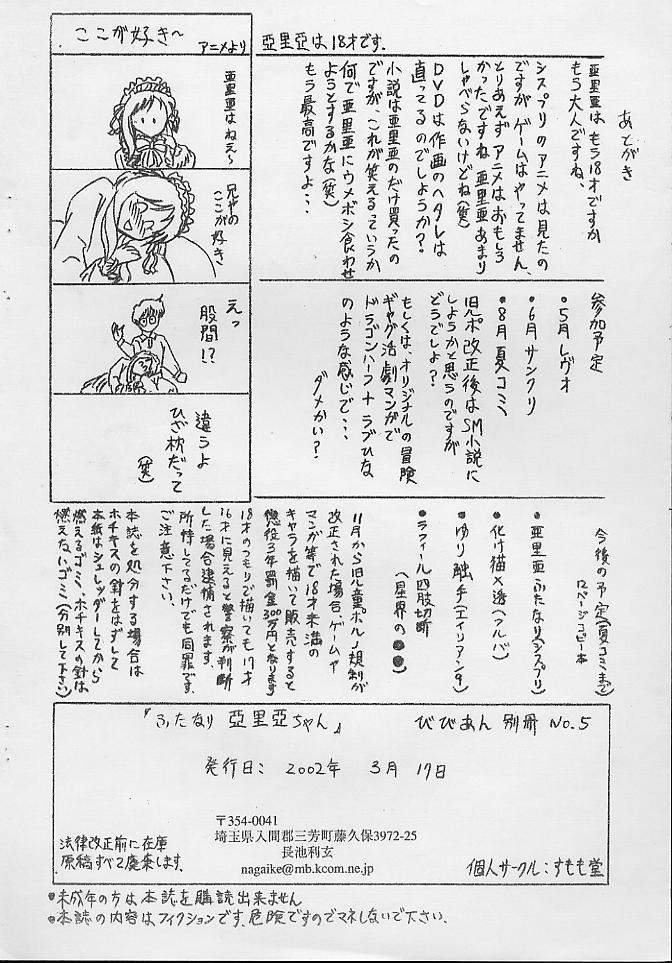 ここが好き〜
アニメより
亜里亜はねえ〜
兄やの
ここが好き、
えっ
股間!?
違うよ
ひざ枕だって
(笑)
亜里亜は18才です.
あとがき
亜里亜は、もう18才ですか
もう大人ですね、
シスプリのアニメは見たの
ですが、ゲームはやってません、
とりあえずアニメはおもしろ
かったですね 亜里亜あまり
しゃべらないけどね(笑)
DVDは作画のヘタレは
直ってるのでしょうか?
小説は亜里亜のだけ買ったの
ですが、これが笑えるっていうか
何で亜里亜にウメボシ食わせ
ようとするかな(笑)
もう最高ですよ・・・
参加予定
・5月レヴォ
・6月サンクリ
・8月夏コミ
児ポ改正後はSM小説に
しようかと思うのですが
どうでしょ?
もしくは、オリジナルの冒険
ギャグ活劇マンガで
ドラゴンハーフ+ラブひな
のような感じで・・・
ダメかい?
今後の予定(夏コミまで)
12ページコピー本
・亜里亜ふたなり(シスプリ)
・化け猫×透(アルバ)
・ゆり触手(エイリアン9)
・ラフィール四肢切断
(星界の●●)
11月から旧児童ポルノ規制が
改正された場合、ゲームや
マンガ等で18才未満の
キャラを描いて販売すると
懲役3年罰金300万円となります
18才のつもりで描いても17才
16才に見えると警察が判断
した場合逮捕されます、
所持してるだけでも同罪です、
ご注意下さい、
本誌を処分する場合は
ホチキスの針をはずして
本紙はシュレッダーしてから
燃えるゴミ、ホチキスの針は
燃えないゴミ(分別して下さい)
『ふたなり 亜里亜ちゃん』
びびあん 別冊 No.5
発行日: 2002年 3月 17日
〒354-0041
埼玉県入間郡三芳町藤久保3972-25
長池利玄
nagaike@mb.kcom.ne.jp
法律改正前に在庫
原稿すべて廃棄します.
個人サークル:すもも堂
●未成年の方は本誌を購読出来ません
●本誌の内容はフィクションです、危険ですのでマネしないで下さい.